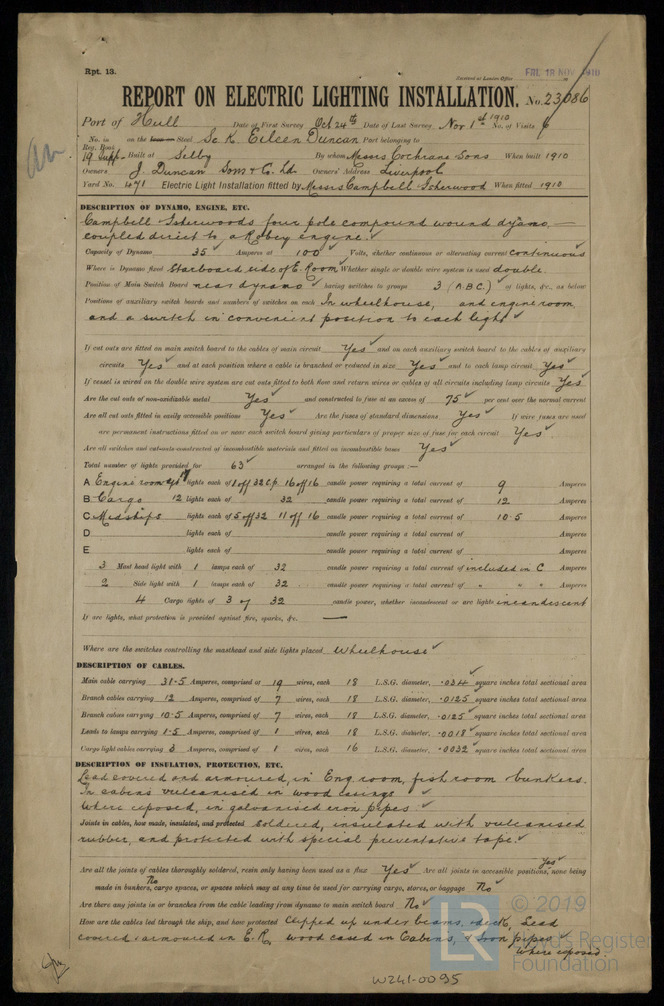 Rpt. 13.
Received at London Office FRI. 18 NOV. 1910
REPORT ON ELECTRIC LIGHTING INSTALLATION. No. 23086
Port of Hull Date of First Survey Oct 24th Date of Last Survey Nov 1st 1910 No. of Visits 6
No. in Reg. Book on the Iron Steel Sc K. Eileen Duncan Port belonging to
19 Supp. Built at Selby By whom Messrs Cochrane Sons When built 1910
Owners J. Duncan Sons & Co. Ld. Owners' Address Liverpool
Yard No. 471 Electric Light Installation fitted by Messrs Campbell Isherwood When fitted 1910
DESCRIPTION OF DYNAMO, ENGINE, ETC.
Campbell Isherwoods four pole compound wound dynamo,
coupled direct to a Robey engine.
Capacity of Dynamo 35 Amperes at 100 Volts, whether continuous or alternating current continuous
Where is Dynamo fixed Starboard side of E. Room Whether single or double wire system is used double.
Position of Main Switch Board near dynamo having switches to groups 3 (A.B.C.) of lights, &c., as below
Positions of auxiliary switch boards and numbers of switches on each In wheelhouse, and engine room
and a switch in convenient position to each light
If cut outs are fitted on main switch board to the cables of main circuit Yes and on each auxiliary switch board to the cables of auxiliary
circuits Yes and at each position where a cable is branched or reduced in size Yes and to each lamp circuit Yes
If vessel is wired on the double wire system are cut outs fitted to both flow and return wires or cables of all circuits including lamp circuits Yes
Are the cut outs of non-oxidizable metal Yes and constructed to fuse at an excess of 75 per cent over the normal current
Are all cut outs fitted in easily accessible positions Yes Are the fuses of standard dimensions Yes If wire fuses are used
are permanent instructions fitted on or near each switch board giving particulars of proper size of fuse for each circuit Yes
Are all switches and cut-outs constructed of incombustible materials and fitted on incombustible bases Yes
Total number of lights provided for 63 arranged in the following groups :—
A Engine room &c 17 lights each of 1 off 32 C.p. 16 off 16 candle power requiring a total current of 9 Amperes
B Cargo 12 lights each of 32 candle power requiring a total current of 12 Amperes
C Midships lights each of 5 off 32 11 off 16 candle power requiring a total current of 10.5 Amperes
D lights each of candle power requiring a total current of Amperes
E lights each of candle power requiring a total current of Amperes
3 Mast head light with 1 lamps each of 32 candle power requiring a total current of included in C Amperes
2 Side light with 1 lamps each of 32 candle power requiring a total current of " " " Amperes
4 Cargo lights of 3 of 32 candle power, whether incandescent or arc lights incandescent
If arc lights, what protection is provided against fire, sparks, &c. —
Where are the switches controlling the masthead and side lights placed Wheelhouse
DESCRIPTION OF CABLES.
Main cable carrying 31.5 Amperes, comprised of 19 wires, each 18 L.S.G. diameter, .034 square inches total sectional area
Branch cables carrying 12 Amperes, comprised of 7 wires, each 18 L.S.G. diameter, .0125 square inches total sectional area
Branch cables carrying 10.5 Amperes, comprised of 7 wires, each 18 L.S.G. diameter, .0125 square inches total sectional area
Leads to lamps carrying 1.5 Amperes, comprised of 1 wires, each 18 L.S.G. diameter, .0018 square inches total sectional area
Cargo light cables carrying 3 Amperes, comprised of 1 wires, each 16 L.S.G. diameter, .0032 square inches total sectional area
DESCRIPTION OF INSULATION, PROTECTION, ETC.
Lead covered and armoured, in Eng room, fish room bunkers.
In cabins vulcanised in wood casings
Where exposed, in galvanised iron pipes
Joints in cables, how made, insulated, and protected Soldered, insulated with vulcanised
rubber, and protected with special preventative tape.
Are all the joints of cables thoroughly soldered, resin only having been used as a flux Yes Are all joints in accessible positions, Yes none being
made in bunkers, No cargo spaces, or spaces which may at any time be used for carrying cargo, stores, or baggage No
Are there any joints in or branches from the cable leading from dynamo to main switch board No
How are the cables led through the ship, and how protected Clipped up under beams, deck, Lead
covered & armoured in E.R, wood cased in Cabins, & Iron pipes
where exposed
© 2019
LR
Lloyd's Register
Foundation
W241-0095